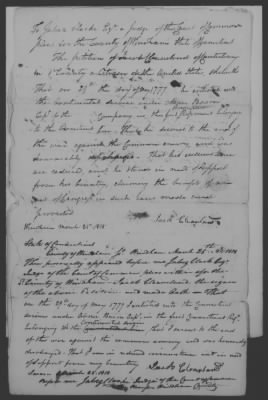 To Jabez Clarke Esqr a Judge of the Court of Common
Pleas for the County of Windham State of Connecticut
The petition of Jacob Cleaveland of Canterbury
in sd County a Citizen of the United States, sheweth
That on 29th day of May 1777 he entered into
the continental service under
Capt in the first Regiment
of the Connecticut line. That he served to the end of
the war against the common enemy, and was
honourably discharged. That his circumstances
are reduced, and he stands in need of support
from his country, claiming the benefit of an
act of Congress in such case made and
provided
Jacob Cleaveland
Windham March 25th 1818
State of Connecticut
County of Windham ss. Windham March 25th AD. 1818
Then personally appeared before me Jabez Clark Esqr.
Judge of the Court of Common pleas within & for the
sd County of Windham, Jacob Cleaveland the signer
of the above Petition and made Oath that
on the 29th day of May 1777 I entered into the Continental
service under Capt. in the first Connecticut Regt.
belonging to the that I served to the end
of the war against the common enemy and was honourably
discharged. That I am in reduced circumstances and in need
of support from my country.
Jacob Cleaveland
Sworn March 25. 1818
Before me Jabez Clark Judge of the Court of Common
Pleas for Windham County